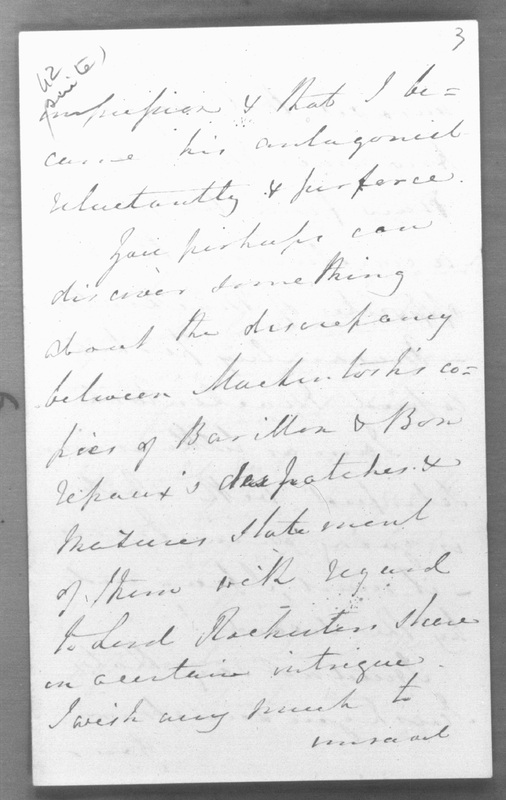 3
42
(suite)
impression & that I be=
came his antagonist
reluctantly & perforce.
You perhaps can
discover something
about the discrepancy
between Mackintosh's co=
pies of Barillon & Bon
repaux's despatches &
Mazures statement
of them with regard
to Lord Rochesters share
in a certain intrigue.
I wish very much to
unravel